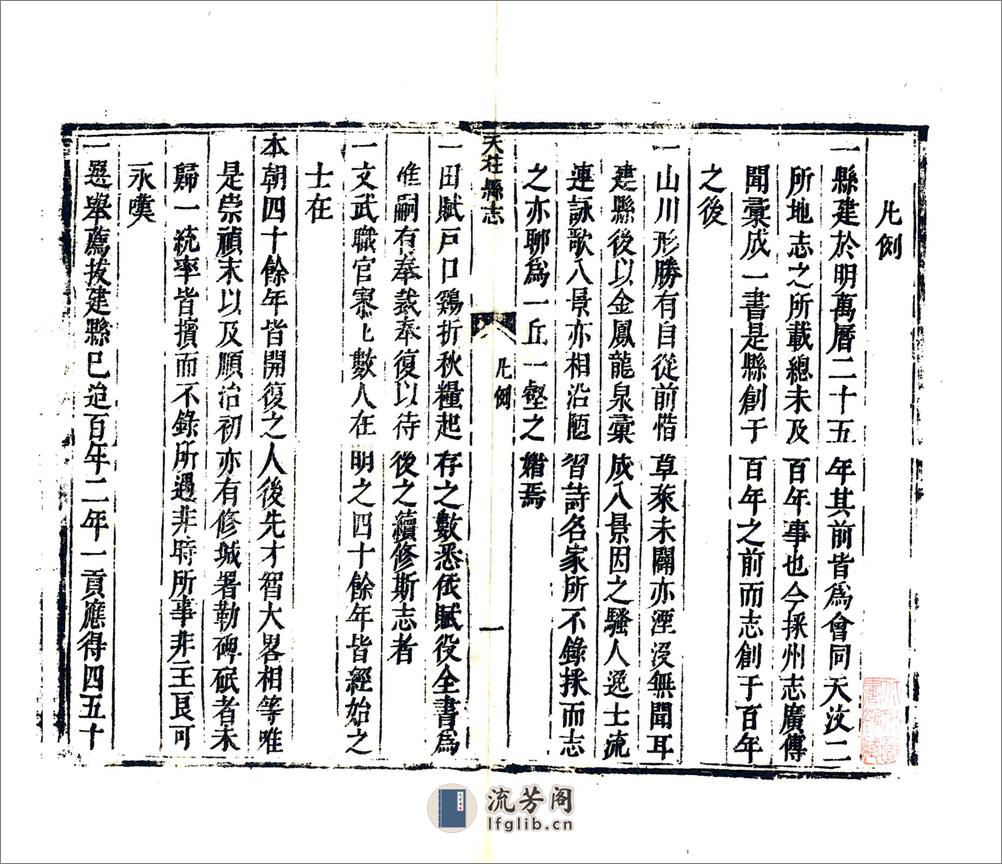 凡例
一縣建於明萬曆二十五年其前皆爲會同天汶二
所地志之所載總未及百年事也今採州志廣傳
聞彙成一書是縣創于百年之前而志創于百年
之後
一山川形勝有自從前惜草萊未闢亦湮沒無聞耳
建縣後以金鳳龍泉彙成八景因之騷人逸士流
連詠歌八景亦相沿陋習詩名家所不錄採而志
之亦聊爲一丘一壑之嚆焉
天柱縣志
凡例
一
一田賦戸口鷄折秋糧起存之數悉依賦役全書爲
准嗣有奉裁奉復以待後之續修斯志者
一文武職官寥寥數人在明之四十餘年皆經始之
士在
本朝四十餘年皆開復之人後先才智大畧相等唯
是崇禎末以及順治初亦有修城署勒碑碣者未
歸一統率皆擯而不錄所遇非時所事非王良可
永嘆
一選舉薦拔建縣已迨百年二年一貢應得四五十
流芳阁
lfglib.cn